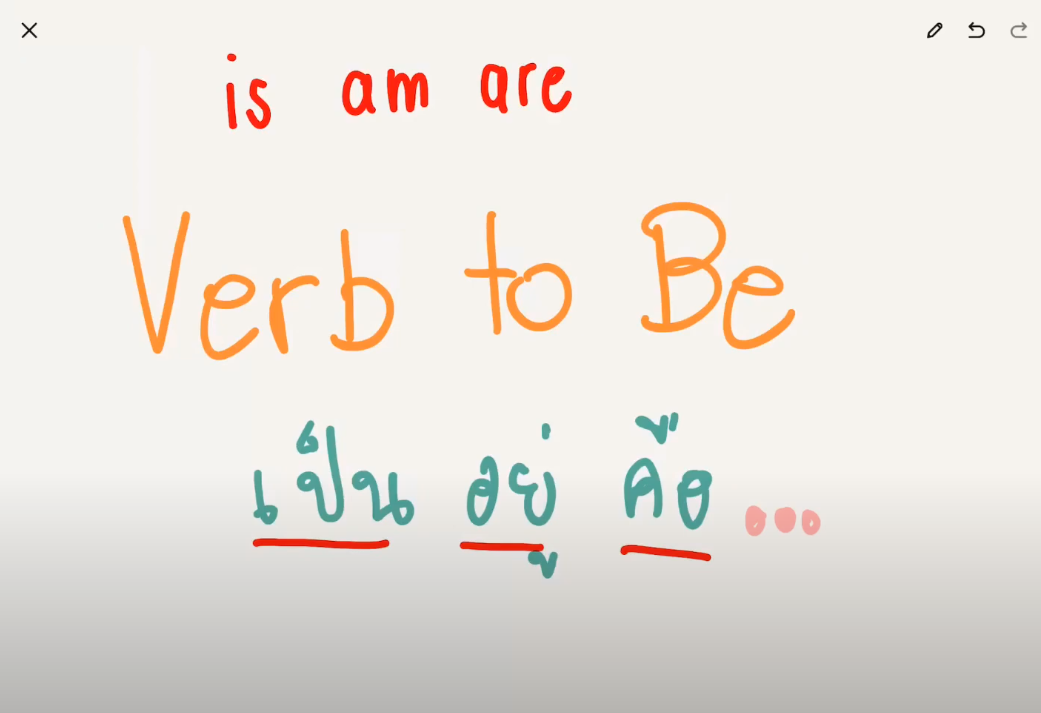 is am are
Verb to Be
เป็น อยู่ คือ ...